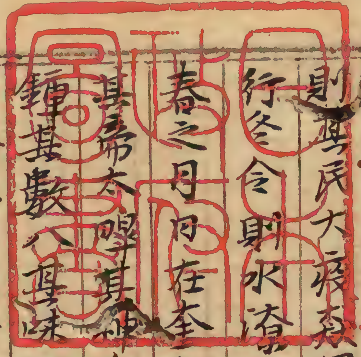 則其民大疫猋
行冬令則水潦
春之月日在奎
其帝太暤其神
鍾其數八其味